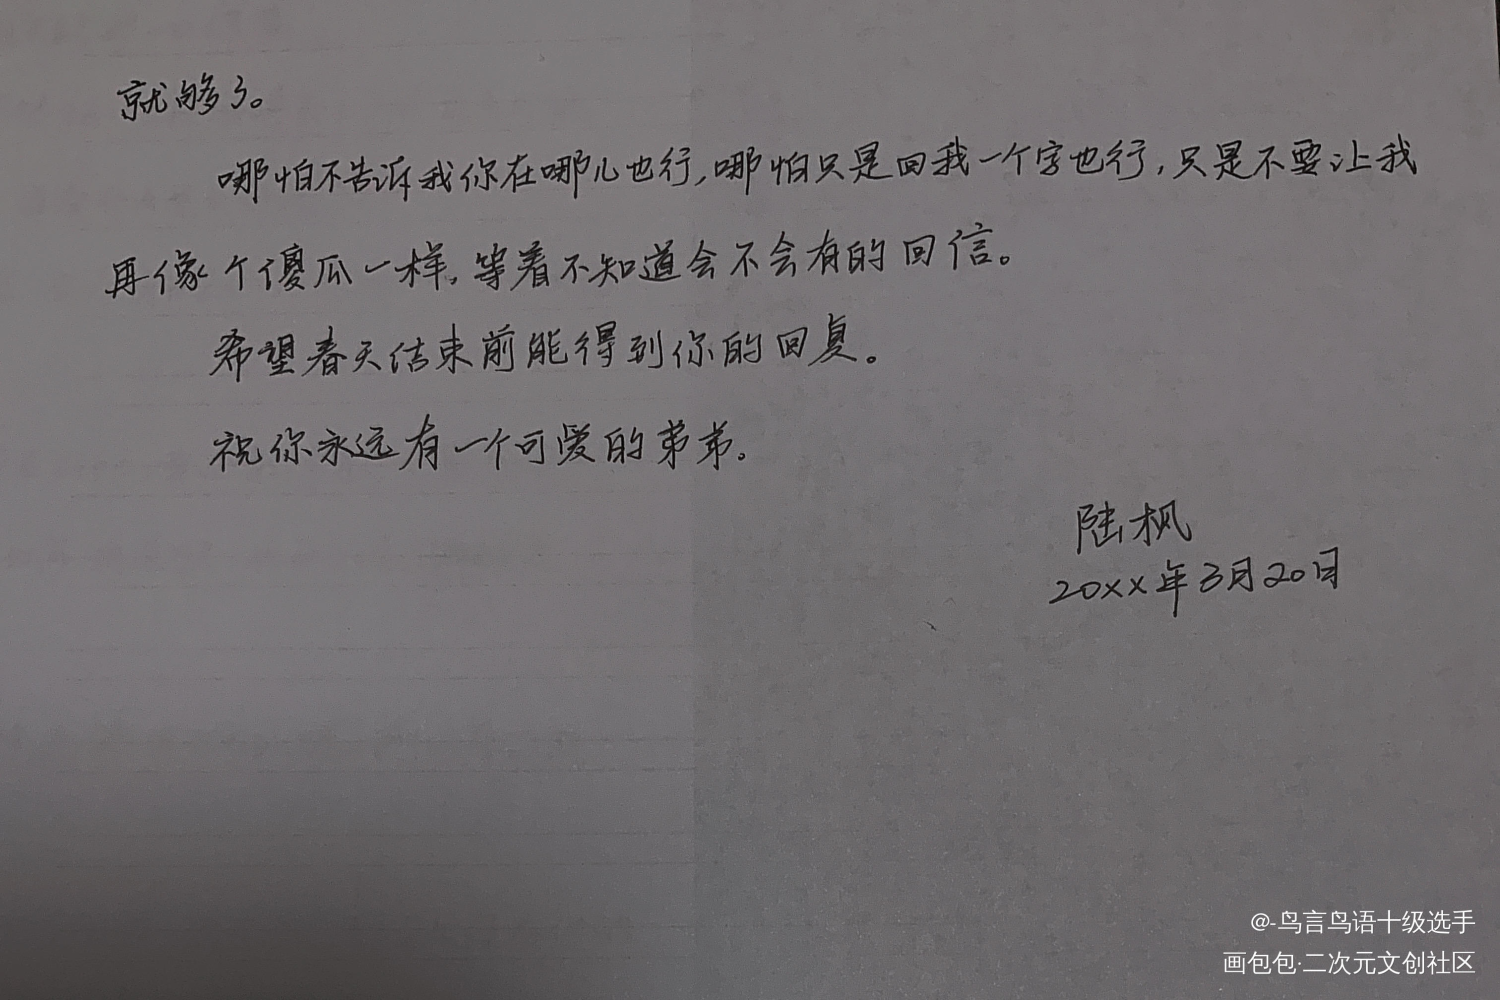 就够了。
哪怕不告诉我你在哪儿也行，哪怕只是回我一个字也行，只是不要让我
再像个傻瓜一样，等着不知道会不会有的回信。
希望春天结束前能得到你的回复。
祝你永远有一个可爱的弟弟。
陆枫
20xx年3月20日
@-鸟言鸟语十级选手
画包包·二次元文创社区